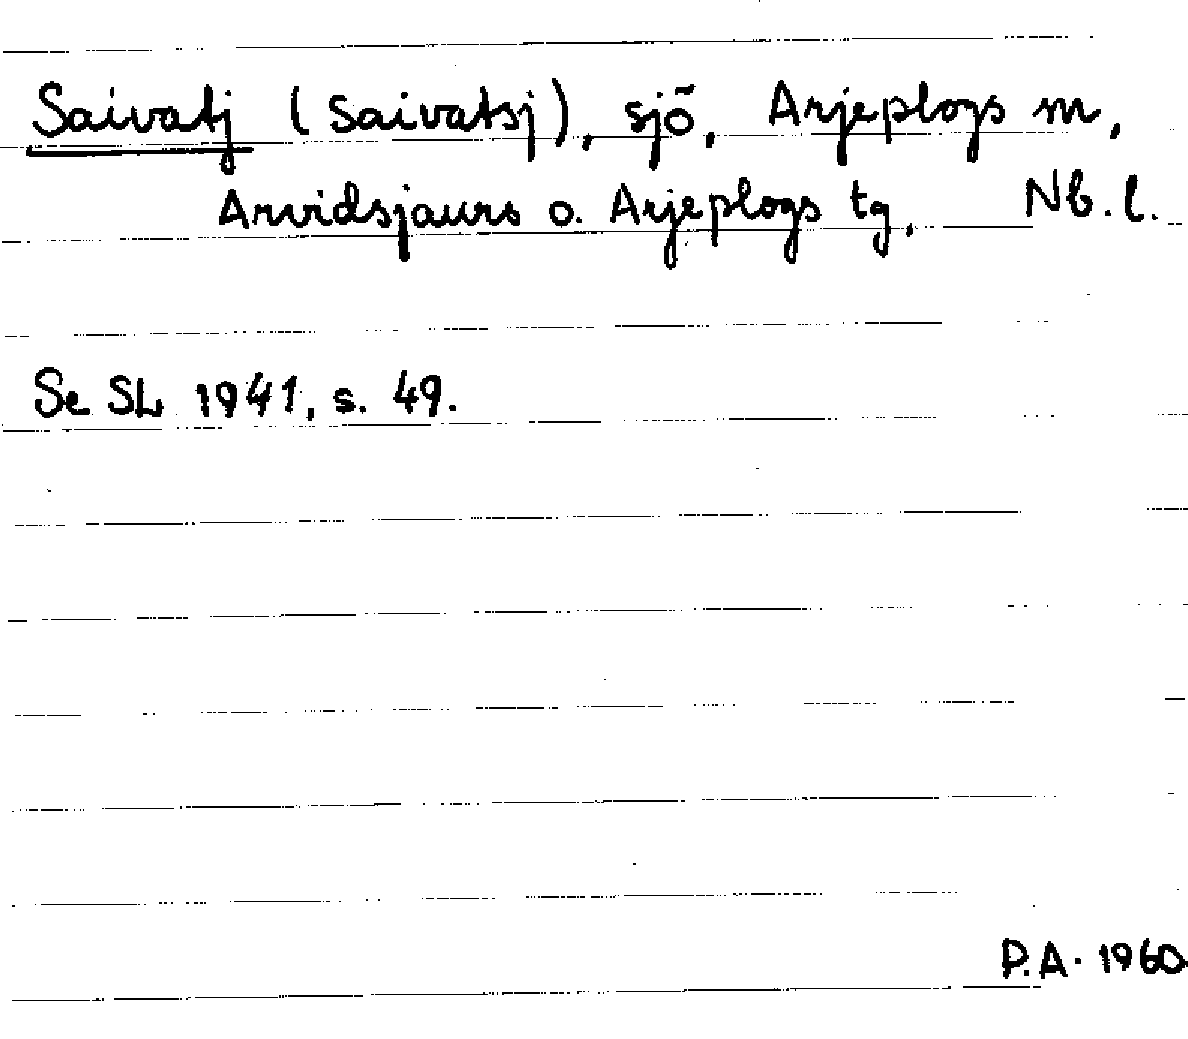 Saivatj (Saivatsj), sjö, Arjeplogs m,
Arvidsjaurs o. Arjeplogs tg, Nb. l.
Se SL 1941, s. 49.
P.A. 1960